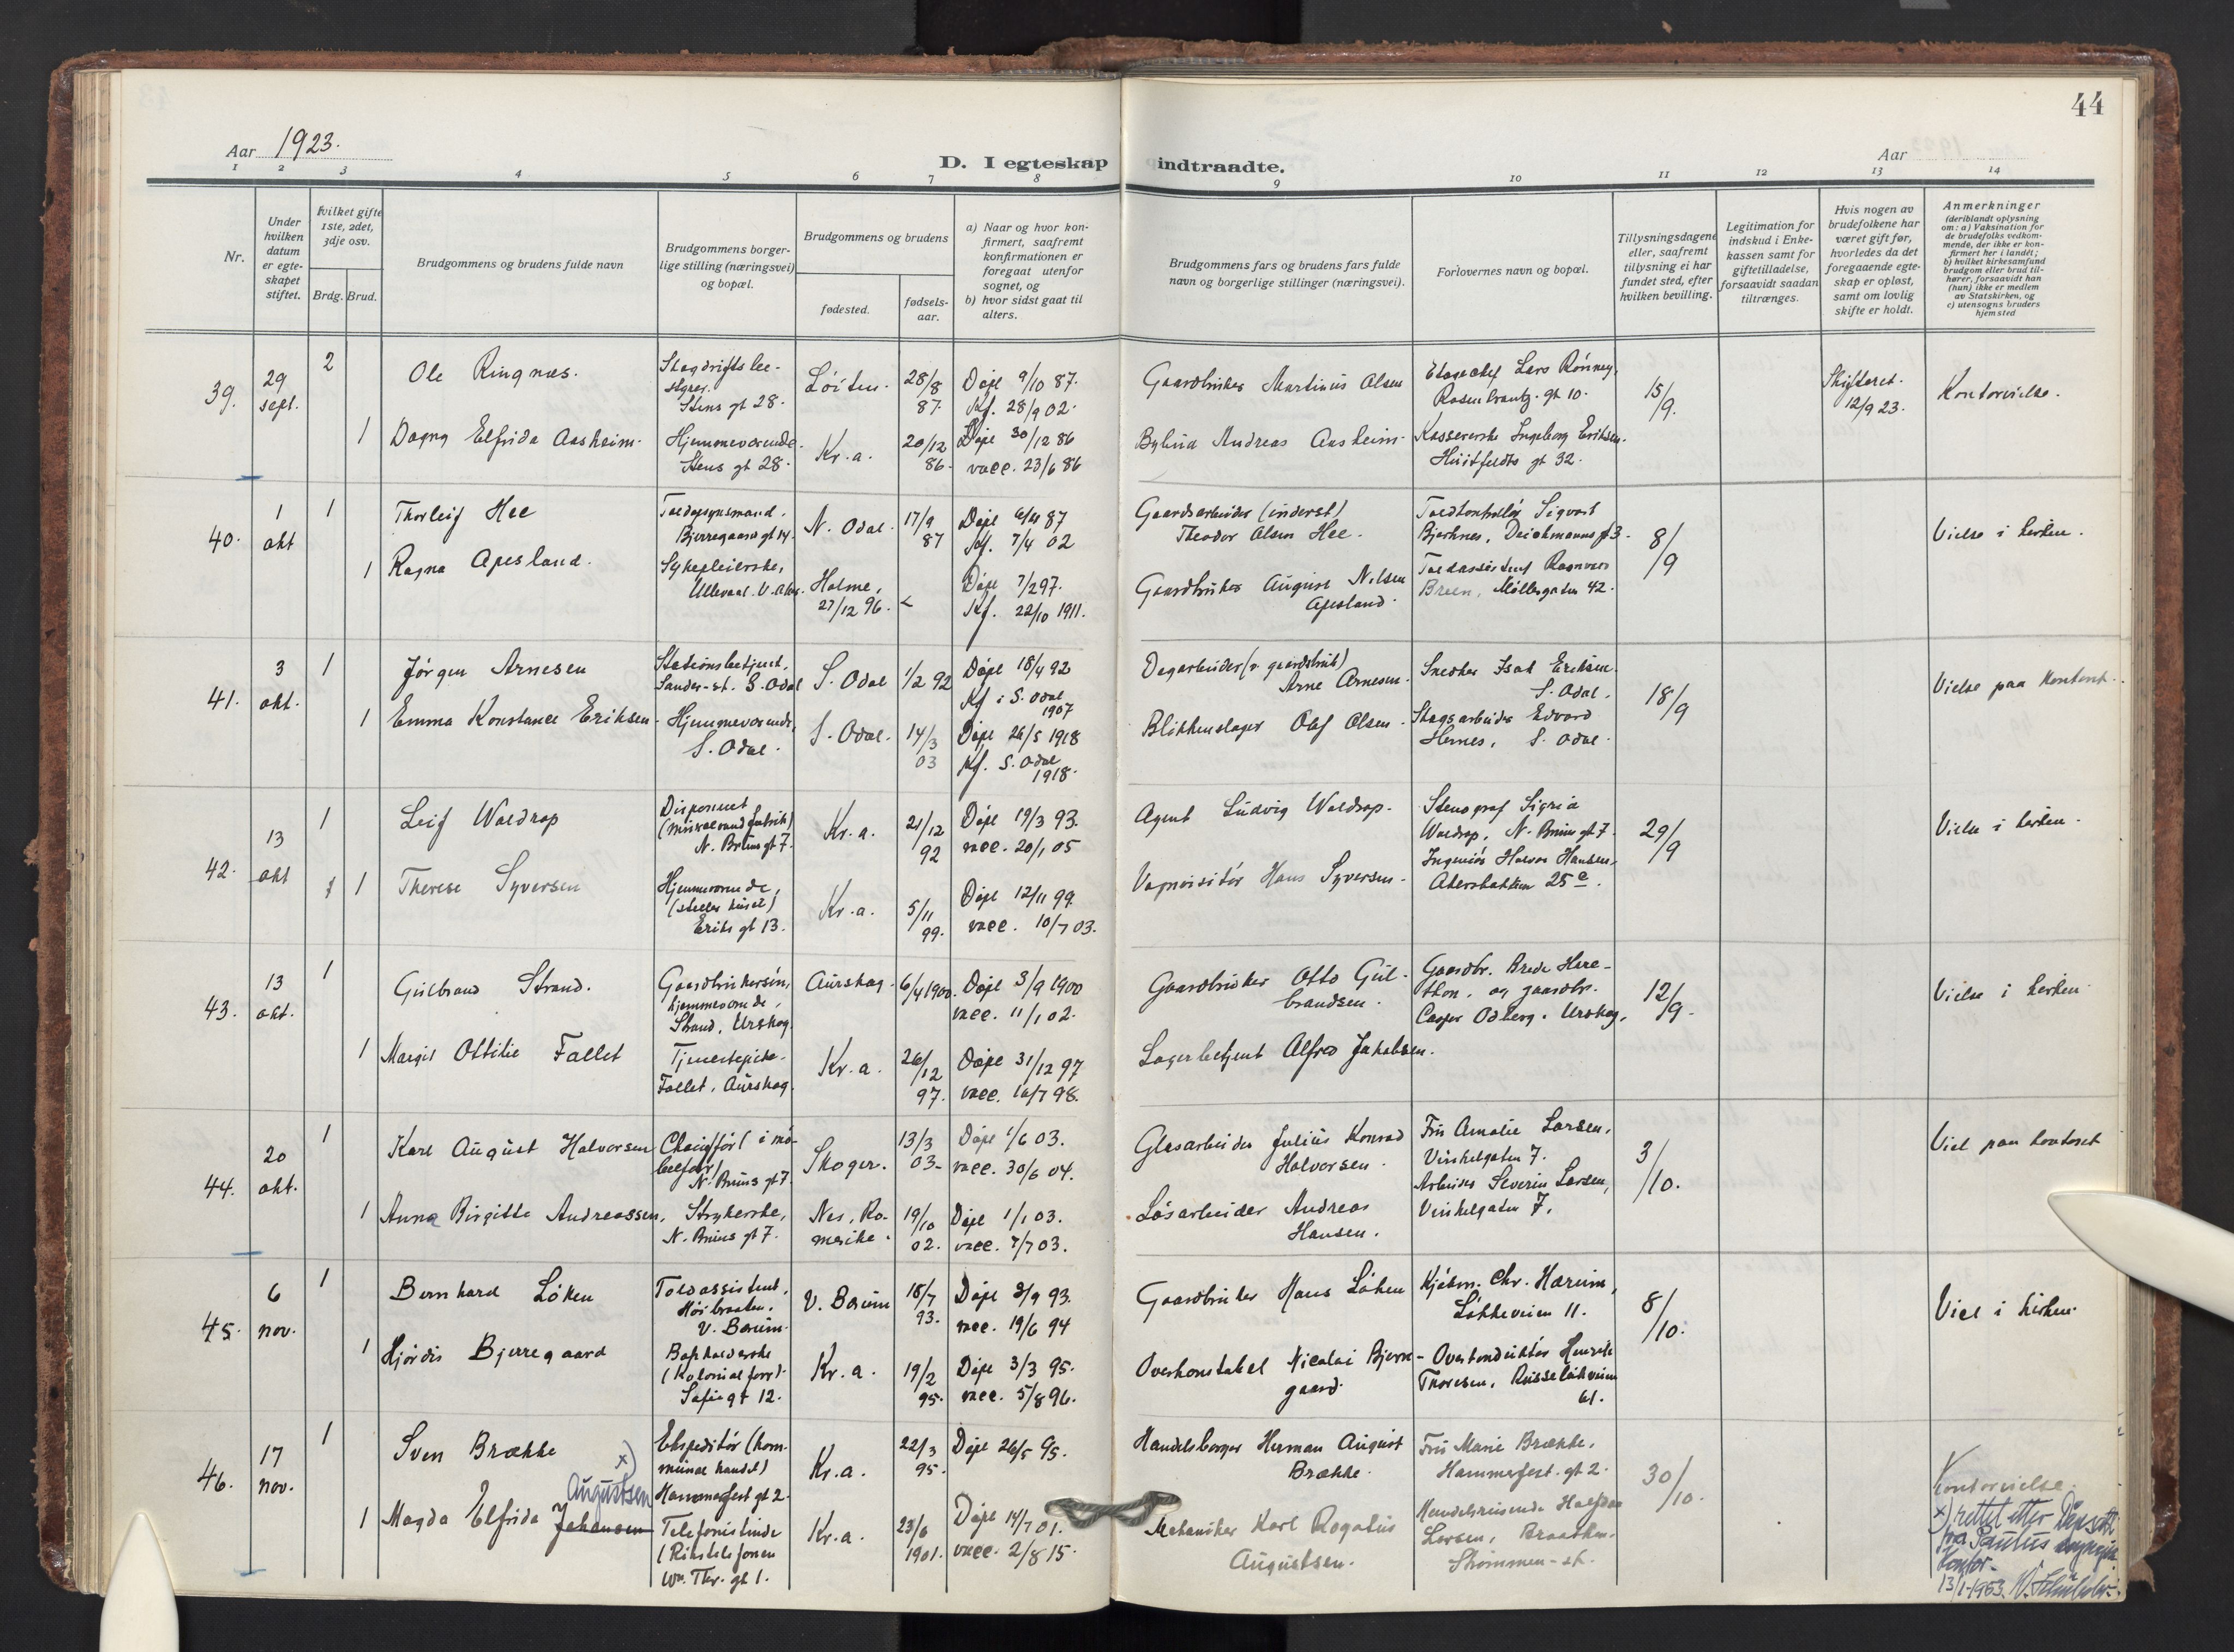 44
Aar 1923.
D. I egteskap indtraadte.
Aar
1 2 3 4 5 6 7 8 9 10 11 12 13 14
Nr.
Under hvilken datum er egteskapet stiftet.
hvilket gifte 1ste, 2det, 3dje osv.
Brdg. Brud.
Brudgommens og brudens fulde navn
Brudgommens borgerlige stilling (næringsvei) og bopæl.
Brudgommens og brudens
fødested.
fødselsaar.
a) Naar og hvor konfirmert, saafremt konfirmationen er foregaat utenfor sognet, og
b) hvor sidst gaat til alters.
Brudgommens fars og brudens fars fulde navn og borgerlige stillinger (næringsvei).
Forlovernes navn og bopæl.
Tillysningsdagene eller, saafremt tillysning ei har fundet sted, efter hvilken bevilling.
Legitimation for indskud i Enkekassen samt for giftetilladelse, forsaavidt saadan tiltrænges.
Hvis nogen av brudefolkene har været gift før, hvorledes da det foregaaende egteskap er opløst, samt om lovlig skifte er holdt.
Anmerkninger
(deriblandt oplysning om: a) Vaksination for de brudefolks vedkommende, der ikke er konfirmert her i landet; b) hvilket kirkesamfund brudgom eller brud tilhører, forsaavidt han (hun) ikke er medlem av Statskirken, og c) utensogns bruders hjemsted
39. 29 sept. 2 Ole Ringnæs. Stens gt 28. Løiten. 28/8 87. Døpt 9/10 87. Kf. 28/9 02. Gaardbruker Martinus Olsen Rosenkrantz. gt 10. 15/9. Skifteret. 12/9 23. Kontorvielse.
1 Dagny Elfrida Aasheim. Hjemmeværende. Stens gt 28. Kr.a. 20/12 86. Døpt 30/12 86 vacc. 23/6 86 Andreas Aasheim. Kassererske Ingeborg Eriksen. Huitfeldts gt 32.
40. 1 okt 1 Thorleif Hee Bjerregaards gt 14. N. Odal. 17/9 87 Døpt 87 Kf. 7/4 02 Gaardsarbeider (inderst) Theodor Olsen Hee. Toldkontrollør Sigvart Bjerknes, Deichmanns gt 3. 8/9 Vielse i kirken.
1 Ragna Apesland. Sykepleierske, Ullevaal. Holme, 27/12 96. Døpt 7/2 97. Kf. 22/10 1911. Gaardbruker August Nilsen Apesland. Toldassistent Ragnvald Breen, Møllergaten 42.
41. 3 okt. 1 Jørgen Arnesen Stationsbetjent, Sander-st. S. Odal S. Odal 1/2 92 Døpt 18/4 92 Kf i S. Odal 1907 Dagarbeider (v. gaardsbruk) Arne Arnesen. Snedker Isak Eriksen. S. Odal. 18/9 Vielse paa kontoret.
1 Emma Konstance Eriksen. Hjemmeværende, S. Odal. S. Odal. 14/3 03 Døpt 26/5 1918 Kf. S. Odal 1918. Blikkenslager Olaf Olsen. Skogsarbeider Edvard Hernes, S. Odal.
42. 13 okt 1 Leif Waldrop Disponent (mineralvandfabrik) N. Bruns gt 7. Kr.a. 21/12 92 Døpt 19/3 93. vacc. 20/1 05 Agent Ludvig Waldrop. Stenograf Sigrid Waldrop, N. Bruns gt 7. 29/9 Vielse i kirken.
1 Therese Syversen Hjemmeværende, (steller huset) Eriks gt 13. Kr.a. 5/11 99. Døpt 12/11 99. vacc. 10/7 03. Vognvisitør Hans Syversen. Ingeniør Halvor Hansen, Akersbakken 25 e.
43. 13 okt. 1 Gulbrand Strand. Gaardbrukersøn, hjemmeværende, Strand, Urskog. Aurskog. 6/4 1900. Døpt 3/9 1900 vacc. 11/1 02. Gaardbruker Otto Gulbrandsen. Gaardbr. Brede og gaardbr. Casper Odberg. Urskog. 12/9. Vielse i kirken.
1 Margit Ottilie Fallet Tjenestepike. Fallet, Aurskog. Kr.a. 26/12 97. Døpt 31/12 97 vacc. 16/7 98. Lagerbetjent Alfred Jakobsen.
44. 20 okt. 1 Karl August Halvorsen Chauffør N. Bruns gt 7. Skoger. 13/3 03. Døpt 1/6 03. vacc. 30/6 04. Glasarbeider Julius Konrad Halvorsen. Fru Amalie Larsen, Vinkelgaten 7. 3/10. Viet paa kontoret
1 Anna Birgitte Andreassen, Strykerske, N. Bruns gt 7. Nes, Romerike. 19/10 02. Døpt 1/1 03. vacc. 7/7 03. Løsarbeider Andreas Hansen. Arbeider Severin Larsen, Vinkelgaten 7.
45. 6 nov. 1 Bernhard Løken Toldassistent, Høibraaten, V. Bærum. V. Bærum 18/7 93. Døpt 3/9 93. vacc. 19/6 94 Gaardbruker Hans Løken Kjøbm. Chr. Hareim, Løkkeveien 11. 8/10. Viet i kirken.
1 Hjørdis Bjerregaard Bokholderske (Kolonialforr.) Sofies gt 12. Kr.a. 19/2 95. Døpt 3/3 95. vacc. 5/8 96. Overkonstabel Nicolai Bjerregaard. Overkonduktør Henrik Thoresen, Ruseløkveien 61.
46. 17 nov. 1 Sven Brække Ekspeditør (kommunal handel) Hammerfest gt 2. Kr.a. 22/3 95. Døpt 26/5 95. Handelsborger Herman August Brække. Fru Marie Brække, Hammerfest. gt 2. 30/10. Kontorvielse.
1 Magda Elfrida Johansen x) Augustsen Telefonistinde (Rikstelefonen Wm. Thr. gt 1. Kr.a. 23/6 1901. Døpt 14/7 01. vacc. 2/8 15. Mekaniker Karl Rogatus Augustsen. Handelsreisende Halfdan Larsen, Braathen. Strømmen-st.
x) rettet etter Døpsatt. fra Paulus kontor. 13/1-1953.